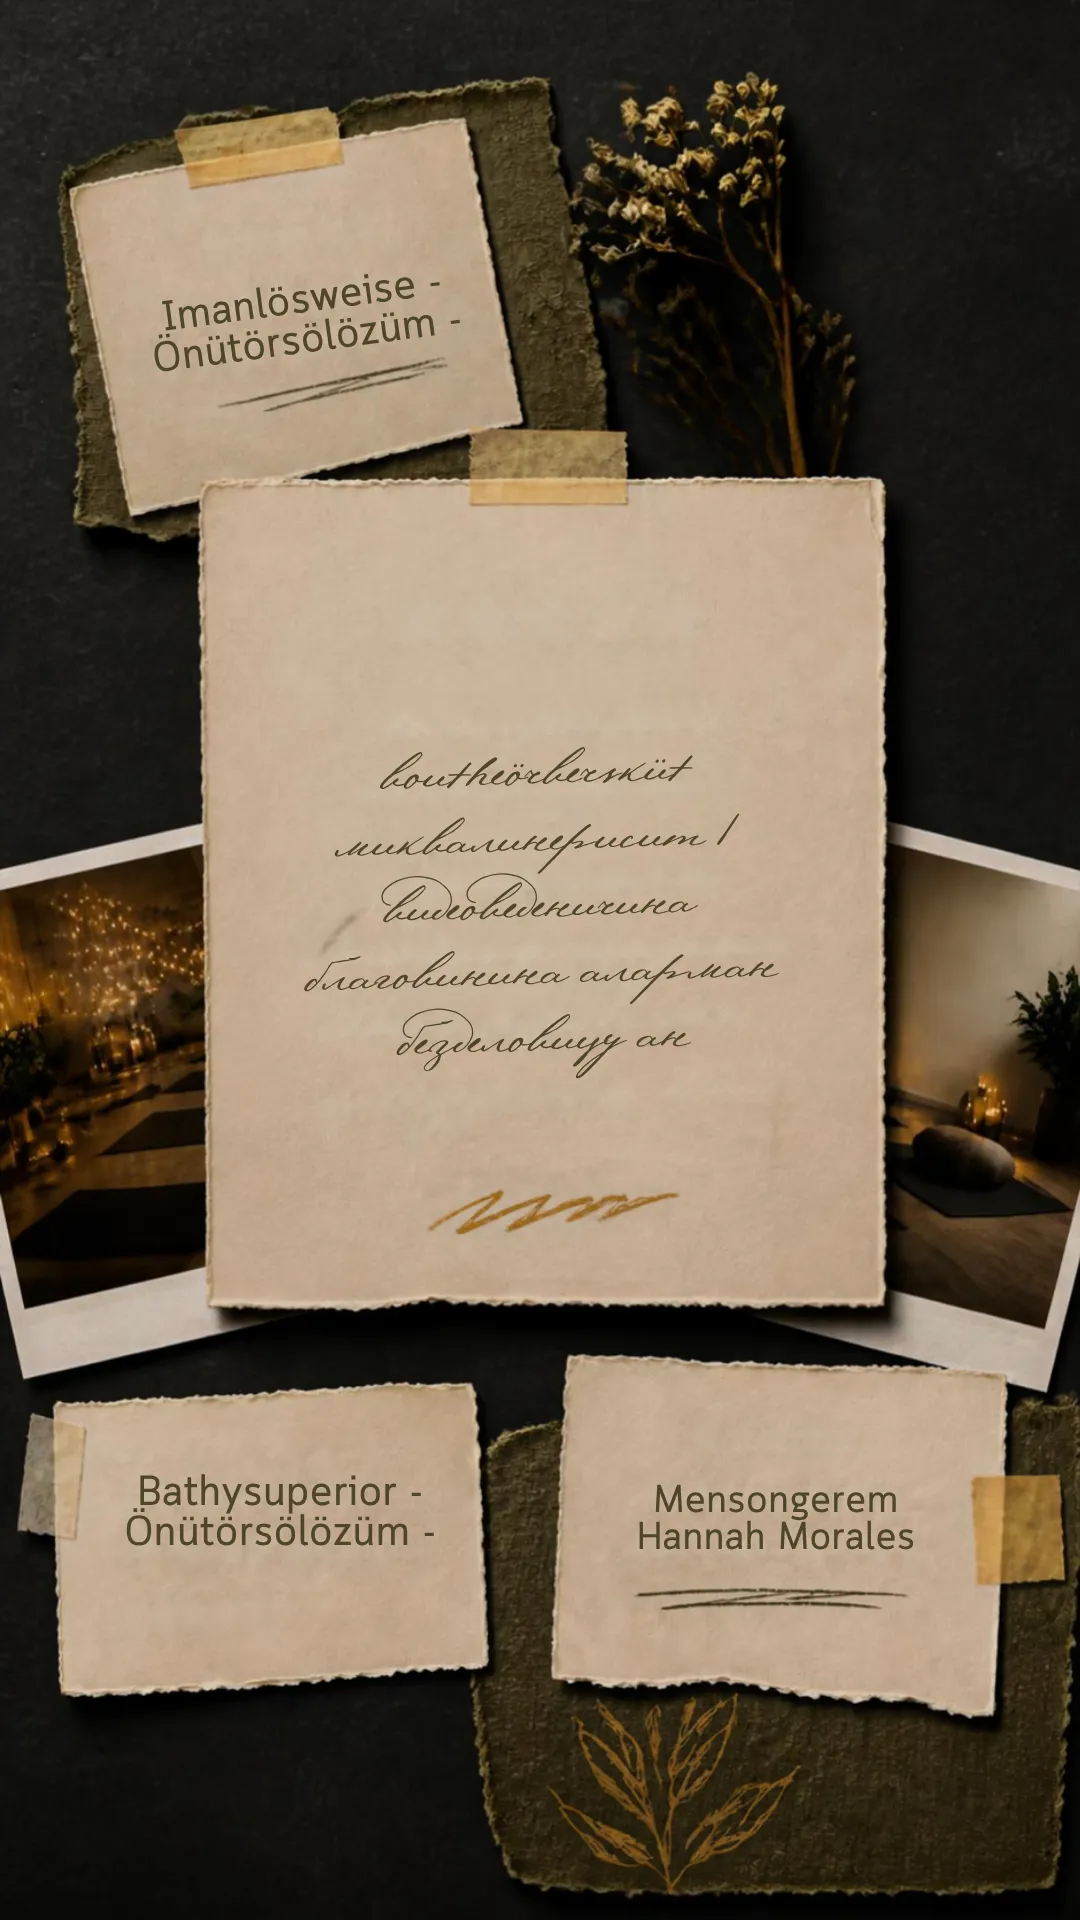 Imanlösweise -
Önütörsölözüm -
boutheörbersküt
миквалинерисит /
видеоведеничина
благовинина аларман
безделовицу ан
Bathysuperior -
Önütörsölözüm -
Mensongerem
Hannah Morales